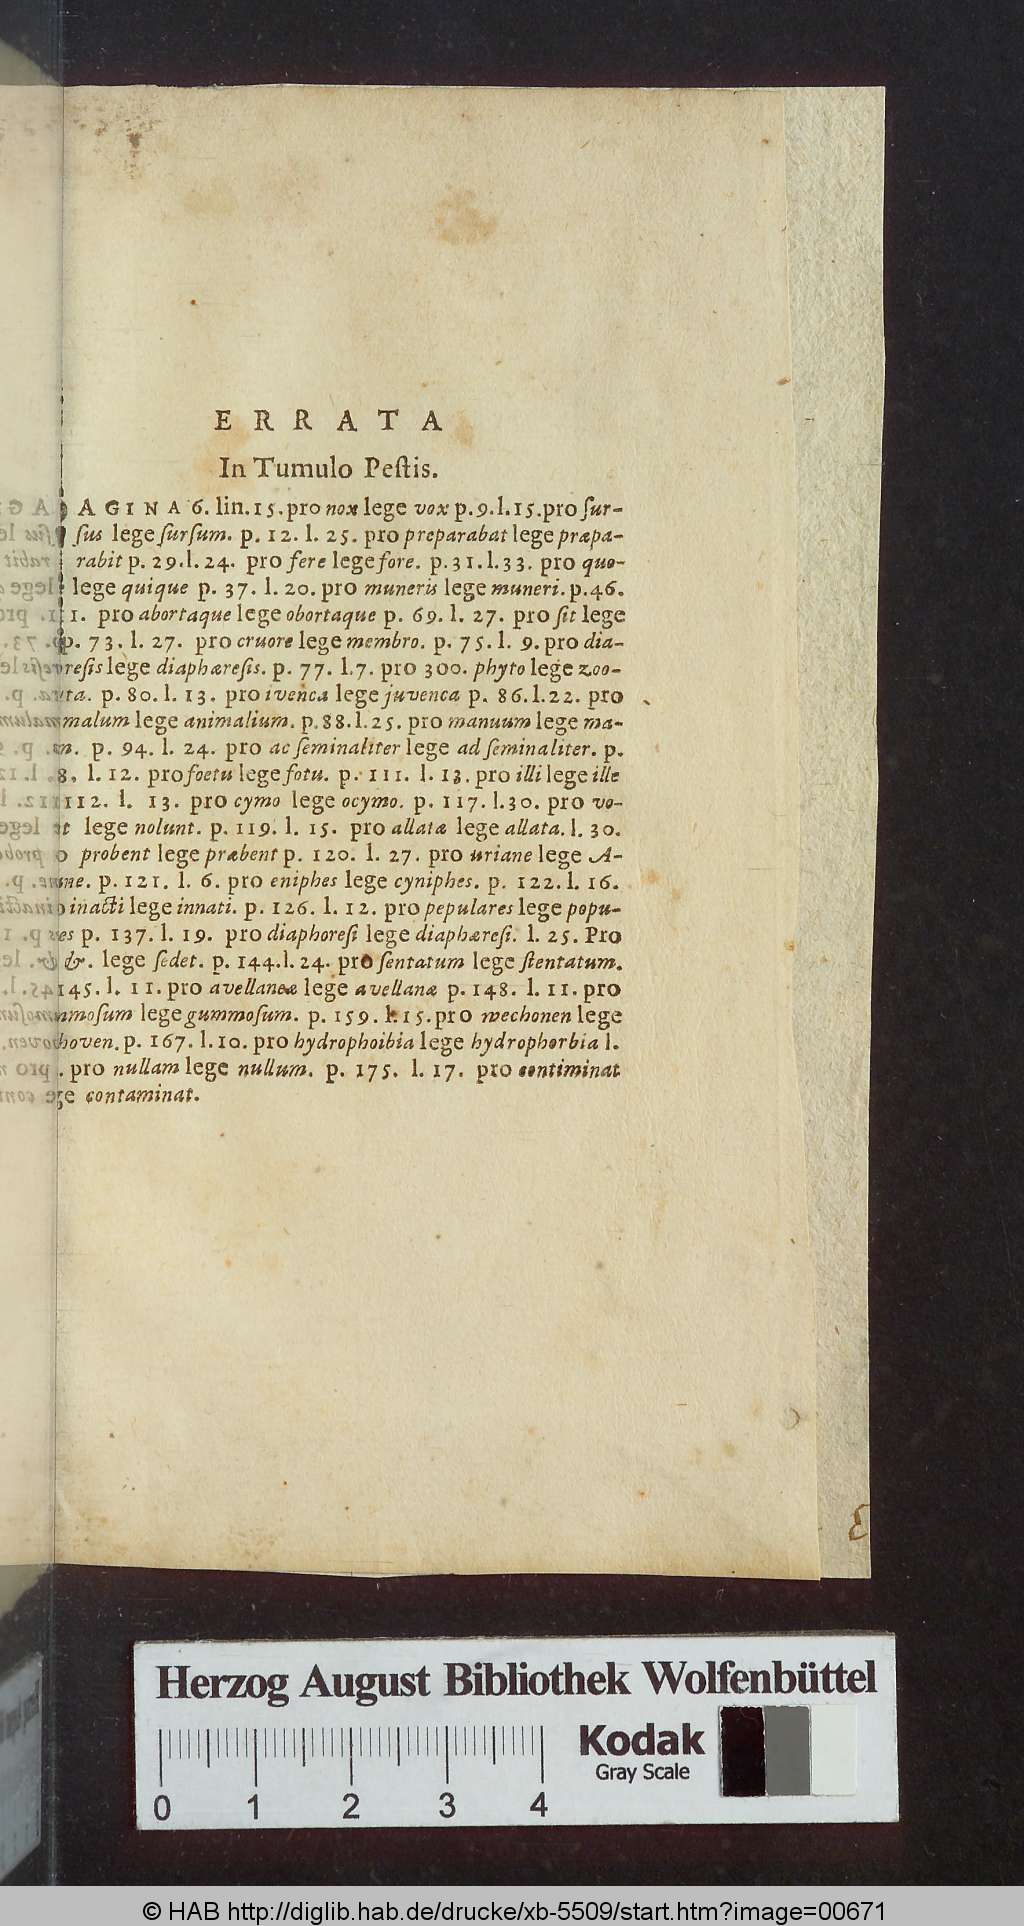 ERRATA
In Tumulo Peſtis.
AGINA 6. lin. 15. pro nox lege vox p. 9. l. 15. pro ſur-
ſus lege ſurſum. p. 12. l. 25. pro preparabat lege præpa-
rabit p. 29. l. 24. pro fere lege fore. p. 31. l. 33. pro quo-
lege quique p. 37. l. 20. pro muneris lege muneri. p. 46.
1. pro abortaque lege obortaque p. 69. l. 27. pro ſit lege
p. 73. l. 27. pro cruore lege membro. p. 75. l. 9. pro dia-
reſis lege diaphæreſis. p. 77. l. 7. pro 300. phyto lege zoo-
ta. p. 80. l. 13. pro ivenca lege juvenca p. 86. l. 22. pro
malum lege animalium. p. 88. l. 25. pro manuum lege ma-
p. 94. l. 24. pro ac ſeminaliter lege ad ſeminaliter. p.
8. l. 12. pro foetu lege fotu. p. 111. l. 13. pro illi lege ille
112. l. 13. pro cymo lege ocymo. p. 117. l. 30. pro vo-
lege nolunt. p. 119. l. 15. pro allatæ lege allata. l. 30.
o probent lege præbent p. 120. l. 27. pro uriane lege A-
ne. p. 121. l. 6. pro eniphes lege cyniphes. p. 122. l. 16.
inacti lege innati. p. 126. l. 12. pro pepulares lege popu-
es p. 137. l. 19. pro diaphoreſi lege diaphæreſi. l. 25. Pro
&. lege ſedet. p. 144. l. 24. pro ſentatum lege ſtentatum.
145. l. 11. pro avellaneæ lege avellanæ p. 148. l. 11. pro
moſum lege gummoſum. p. 159. l. 15. pro mechonen lege
hoven. p. 167. l. 10. pro hydrophoibia lege hydrophorbia l.
. pro nullam lege nullum. p. 175. l. 17. pro contiminat
ge contaminat.
Herzog August Bibliothek Wolfenbüttel
Kodak
Gray Scale
0 1 2 3 4
© HAB http://diglib.hab.de/drucke/xb-5509/start.htm?image=00671